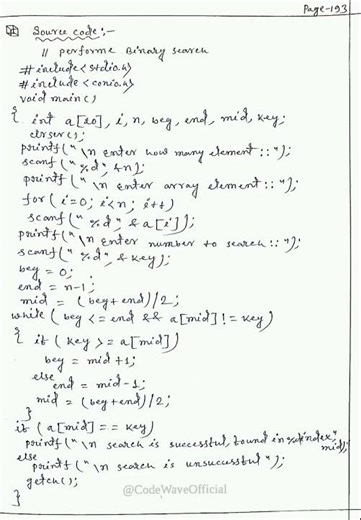 Page-193
Source code:-
// performe Binary search
#include<stdio.h>
#include<conio.h>
void main()
{ int a[20], i, n, beg, end, mid, key;
clrscr();
printf("\n Enter how many element::");
scanf("%d", &n);
printf("\n Enter array element::");
for(i=0; i<n; i++)
scanf("%d", &a[i]);
printf("\n Enter number to search::");
scanf("%d", & key);
beg = 0;
end = n-1;
mid = (beg+end)/2;
while( beg <= end && a[mid] != key)
{ if( key >= a[mid])
beg = mid+1;
else
end = mid-1;
mid = (beg+end)/2;
}
if( a[mid] == key)
printf("\n search is successful, found in %d index", mid);
else
printf("\n search is unsuccessful");
getch();
}
@CodeWaveOfficial